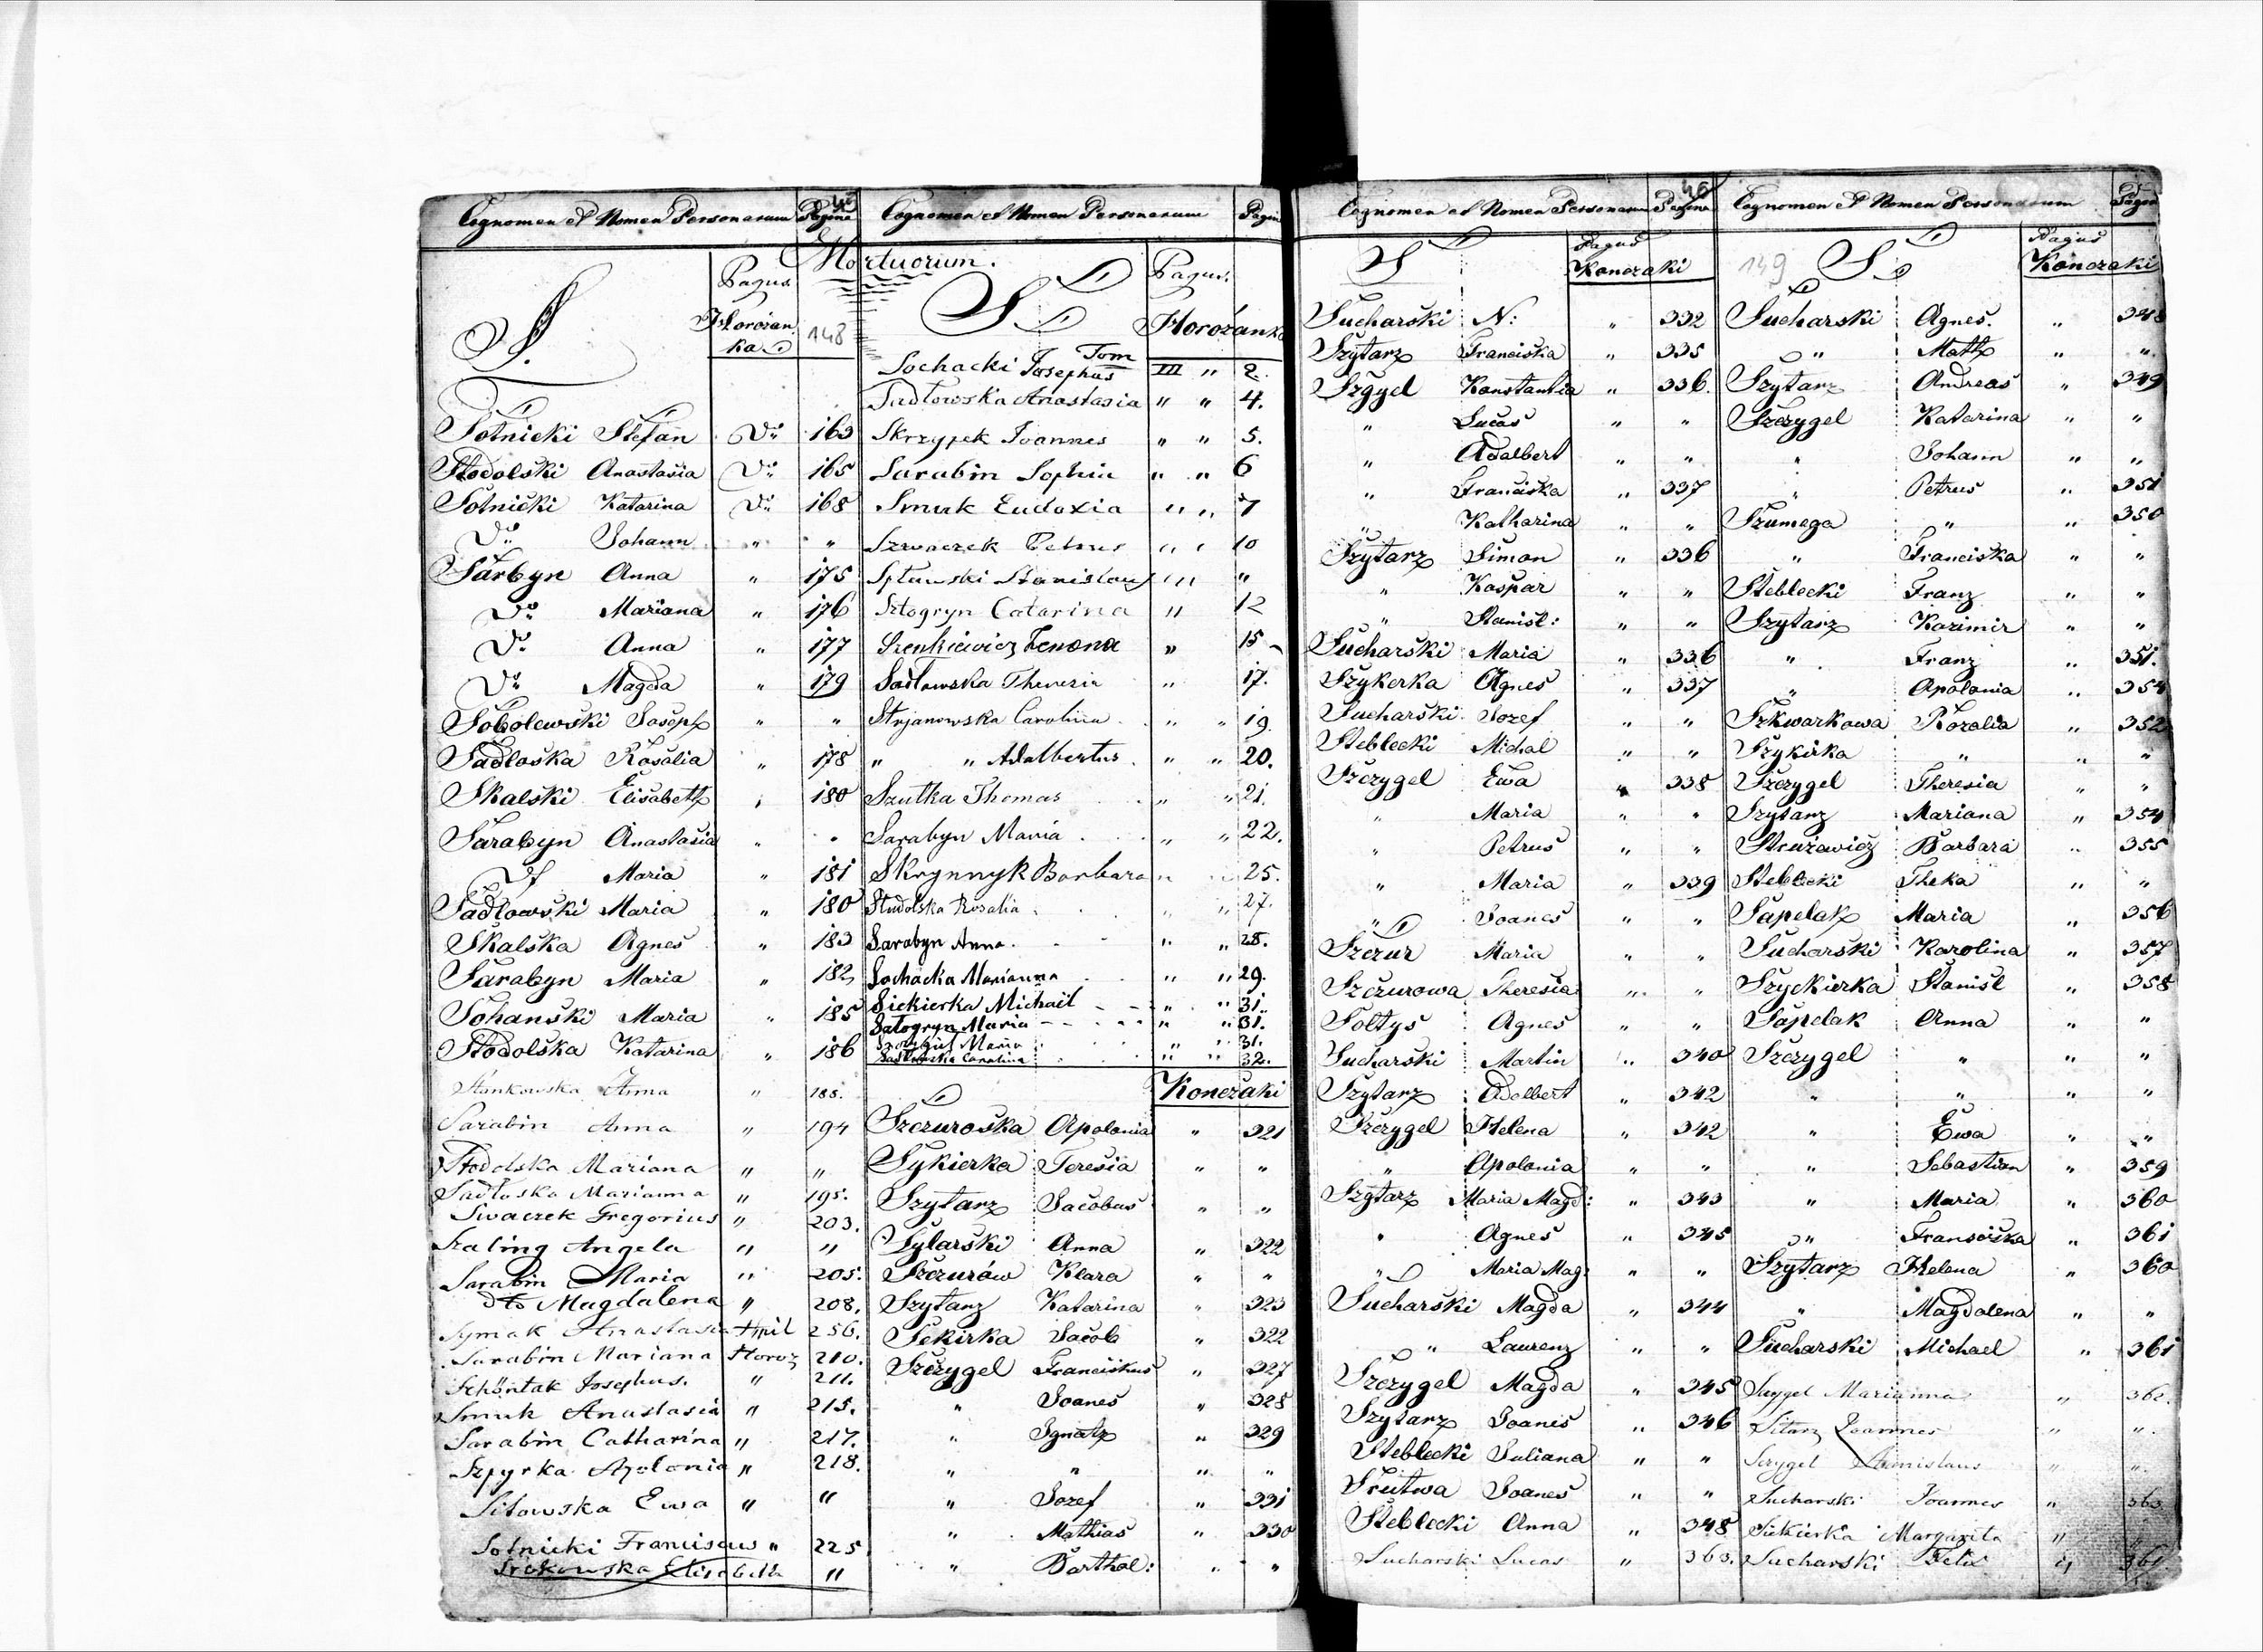 Cognomen et Nomen Personarum Pagina 45
Mortuorum.
S. Pagus Horożanka 148
Sotnicki Stefan Do 163
Stodolski Anastasia Do 165
Sotnicki Katarina Do 168
Do Johann " "
Sarbyn Anna " 175
Do Mariana " 176
Do Anna " 177
Do Magda " 179
Sobolewski Joseph " "
Sadloska Rosalia " 178
Skalski Elisabeth " 180
Sarabyn Anastasia " "
Do Maria " 181
Sadlowski Maria " 180
Skalska Agnes " 183
Sarabyn Maria " 182
Sohanski Maria " 185
Stodolska Katarina " 186
Stankowska Anna " 185.
Sarabin Anna " 194
Stodolska Mariana " "
Sadłoska Marianna " 195.
Swaczek Gregorius " 203.
Szaling Angela " "
Sarabin Maria " 205.
dto Magdalena " 208.
Symak Anastasia 256.
Sarabin Mariana Horoż 210.
Josephus. " 211.
Smuk Anastasia " 215.
Sarabin Catharina " 217.
Szpyrka Apolonia " 218.
Sitowska Ewa " "
Sotnicki Franciscus " 225
Elisabeth "
Cognomen et Nomen Personarum Pagina
S Pagus. Horożanka
Sochacki Josephus Tom III " 2.
Sadłowska Anastasia " " 4.
Skrzypek Joannes " " 5.
Sarabin Sophia " " 6
Smuk Eudoxia " " 7
Szwaczek Petrus " " 10
Stanislaus " " "
Sztogryn Catarina " 12
Senkiewicz Zenona " 15
Sadlowska Theresia " 17.
Stojanowska Carolina " " 19
" " Adalbertus " " 20.
Szutka Thomas " " 21.
Sarabyn Maria " " 22.
Skrynnyk Barbara " " 25.
Studolska Rosalia " " 27.
Sarabyn Anna " " 28.
Sochacka Marianna " " 29.
Siekierka Michail " " 31.
Satogryn Maria " " 31.
Maria " " 31.
Sadlowska Carolina " " 32.
Konczaki
Szczuroska Apolonia " 321
Sykierka Teresia " "
Szytarz Jacobus " "
Sylarski Anna " 322
Szczurów Klara " "
Szytarz Katarina " 323
Sekirka Jacob " 322
Szczygel Franciskus " 327
" Joanes " 328
" Ignatz " 329
" " " "
" Jozef " 331
" Mathias " 330
" Barthol: " "
Cognomen et Nomen Personarum Pagina 46
S Pagus Konczaki
Sucharski N: " 332
Szytarz Franciska " 335
Szgyel Konstantia " 336.
" Lucas " "
" Adalbert " "
" Franciska " 337
" Katharina " "
Szytarz Simon " 336
" Kaspar " "
" Stanisł: " "
Sucharski Maria " 336
Szykerka Agnes " 337
Sucharski Jozef " "
Steblecki Michal " "
Szczygel Ewa " 338
" Maria " "
" Petrus " "
" Maria " 339
" Joanes " "
Szczur Maria " "
Szczurowa Theresia " "
Soltys Agnes " "
Sucharski Martin " 340
Szytarz Adelbert " 342
Szczygel Helena " 342
" Apolonia " "
Szytarz Maria Magd: " 343
" Agnes " 345
" Maria Mag: " "
Sucharski Magda " 344
" Laurenz " "
Szczygel Magda " 345
Szytarz Joanis " 346
Steblecki Juliana " "
Joanes " "
Steblecki Anna " 348
Sucharski Lucas " 363.
Cognomen et Nomen Personarum Pagina
149 S Pagus Konczaki
Sucharski Agnes. " 348
" Math " "
Szytarz Andreas " 349
Szczygel Katarina " "
" Johann " "
" Petrus " 351
Szumega " " 350
" Franciska " "
Steblecki Franz " "
Szytarz Kazimir " "
" Franz " 351.
" Apolonia " 354
Szkwarkowa Rozalia " 352
Szykirka " " "
Szczygel Theresia " "
Szytarz Mariana " 354
Barbara " 355
Steblecki Theka " "
Sapelak Maria " 356
Sucharski Karolina " 357
Szyckierka Stanisł " 358
Sapelak Anna " "
Szczygel " " "
" " " "
" Ewa " "
" Sebastian " 359
" Maria " 360
" Franciska " 361
Szytarz Helena " 360
" Magdalena " "
Sucharski Michael " 361
Marianna " 362.
Sitarz Joannes " "
Stanislaus " "
Sucharski Joannes " 363
Siekierka Margarita " "
Sucharski Felix "